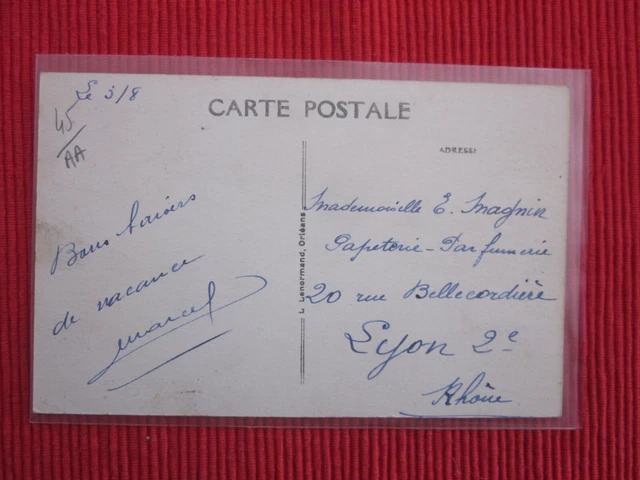 Le 3/8
45
AA
CARTE POSTALE
ADRESSE
Bons baisers
de vacance
Marcel
L. Lenormand, Orléans
Mademoiselle E. Magnin
Papeterie - Parfumerie
20 rue Bellecordière
Lyon 2e
Rhône